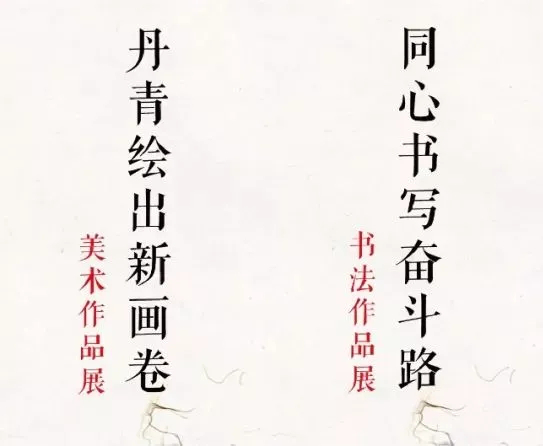 同心书写奋斗路
书法作品展
丹青绘出新画卷
美术作品展